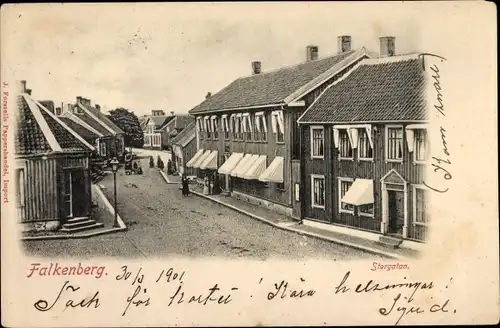 J. Forsells Pappershandel, Import
Falkenberg.
Storgatan.
30/3 1901
Tack för kortet! Kära helsningar!